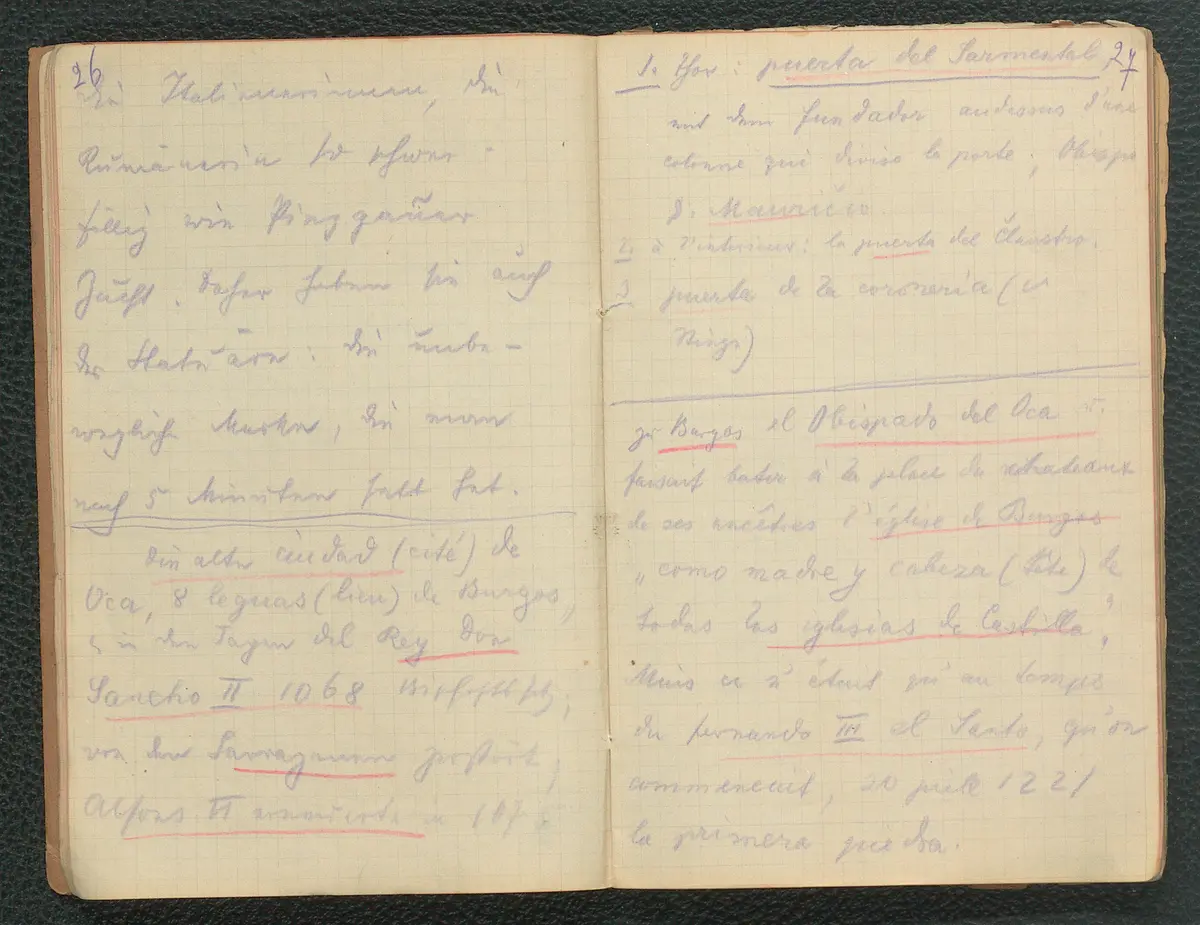 26
die Italienerinnen, die
Rumänerin so schwer-
fällig wie Pinzgauer
Zucht. Daher haben sie auch
der Statuäre: die unbe-
wegliche Maske, die man
nach 5 Minuten satt hat.
Die alte ciudad (cité) de
Oca, 8 leguas (lieu) de Burgos,
in den Tagen del Rey Don
Sancho II 1068 Bischofssitz,
von den Sarrazenen zerstört,
Alfons VI in 107
27
1. Thor: puerta del Sarmental
mit dem fundador audessus d'une
colonne qui divise la porte; Obispo
D. Mauricio.
2. à l'interieur: la puerta del Claustro.
3 puerta de la coroneria (
Stiege)
zu Burgos el Obispado del Oca
faisant batir à la place du
de ses ancêtres l'église de Burgos
„como madre y cabeza (tête) de
todas las iglesias de Castilla"
Mais ce n'était qu'au temps
du fernando III el Santo, qu'on
commencait, 20 juill 1221
la primera piedra.